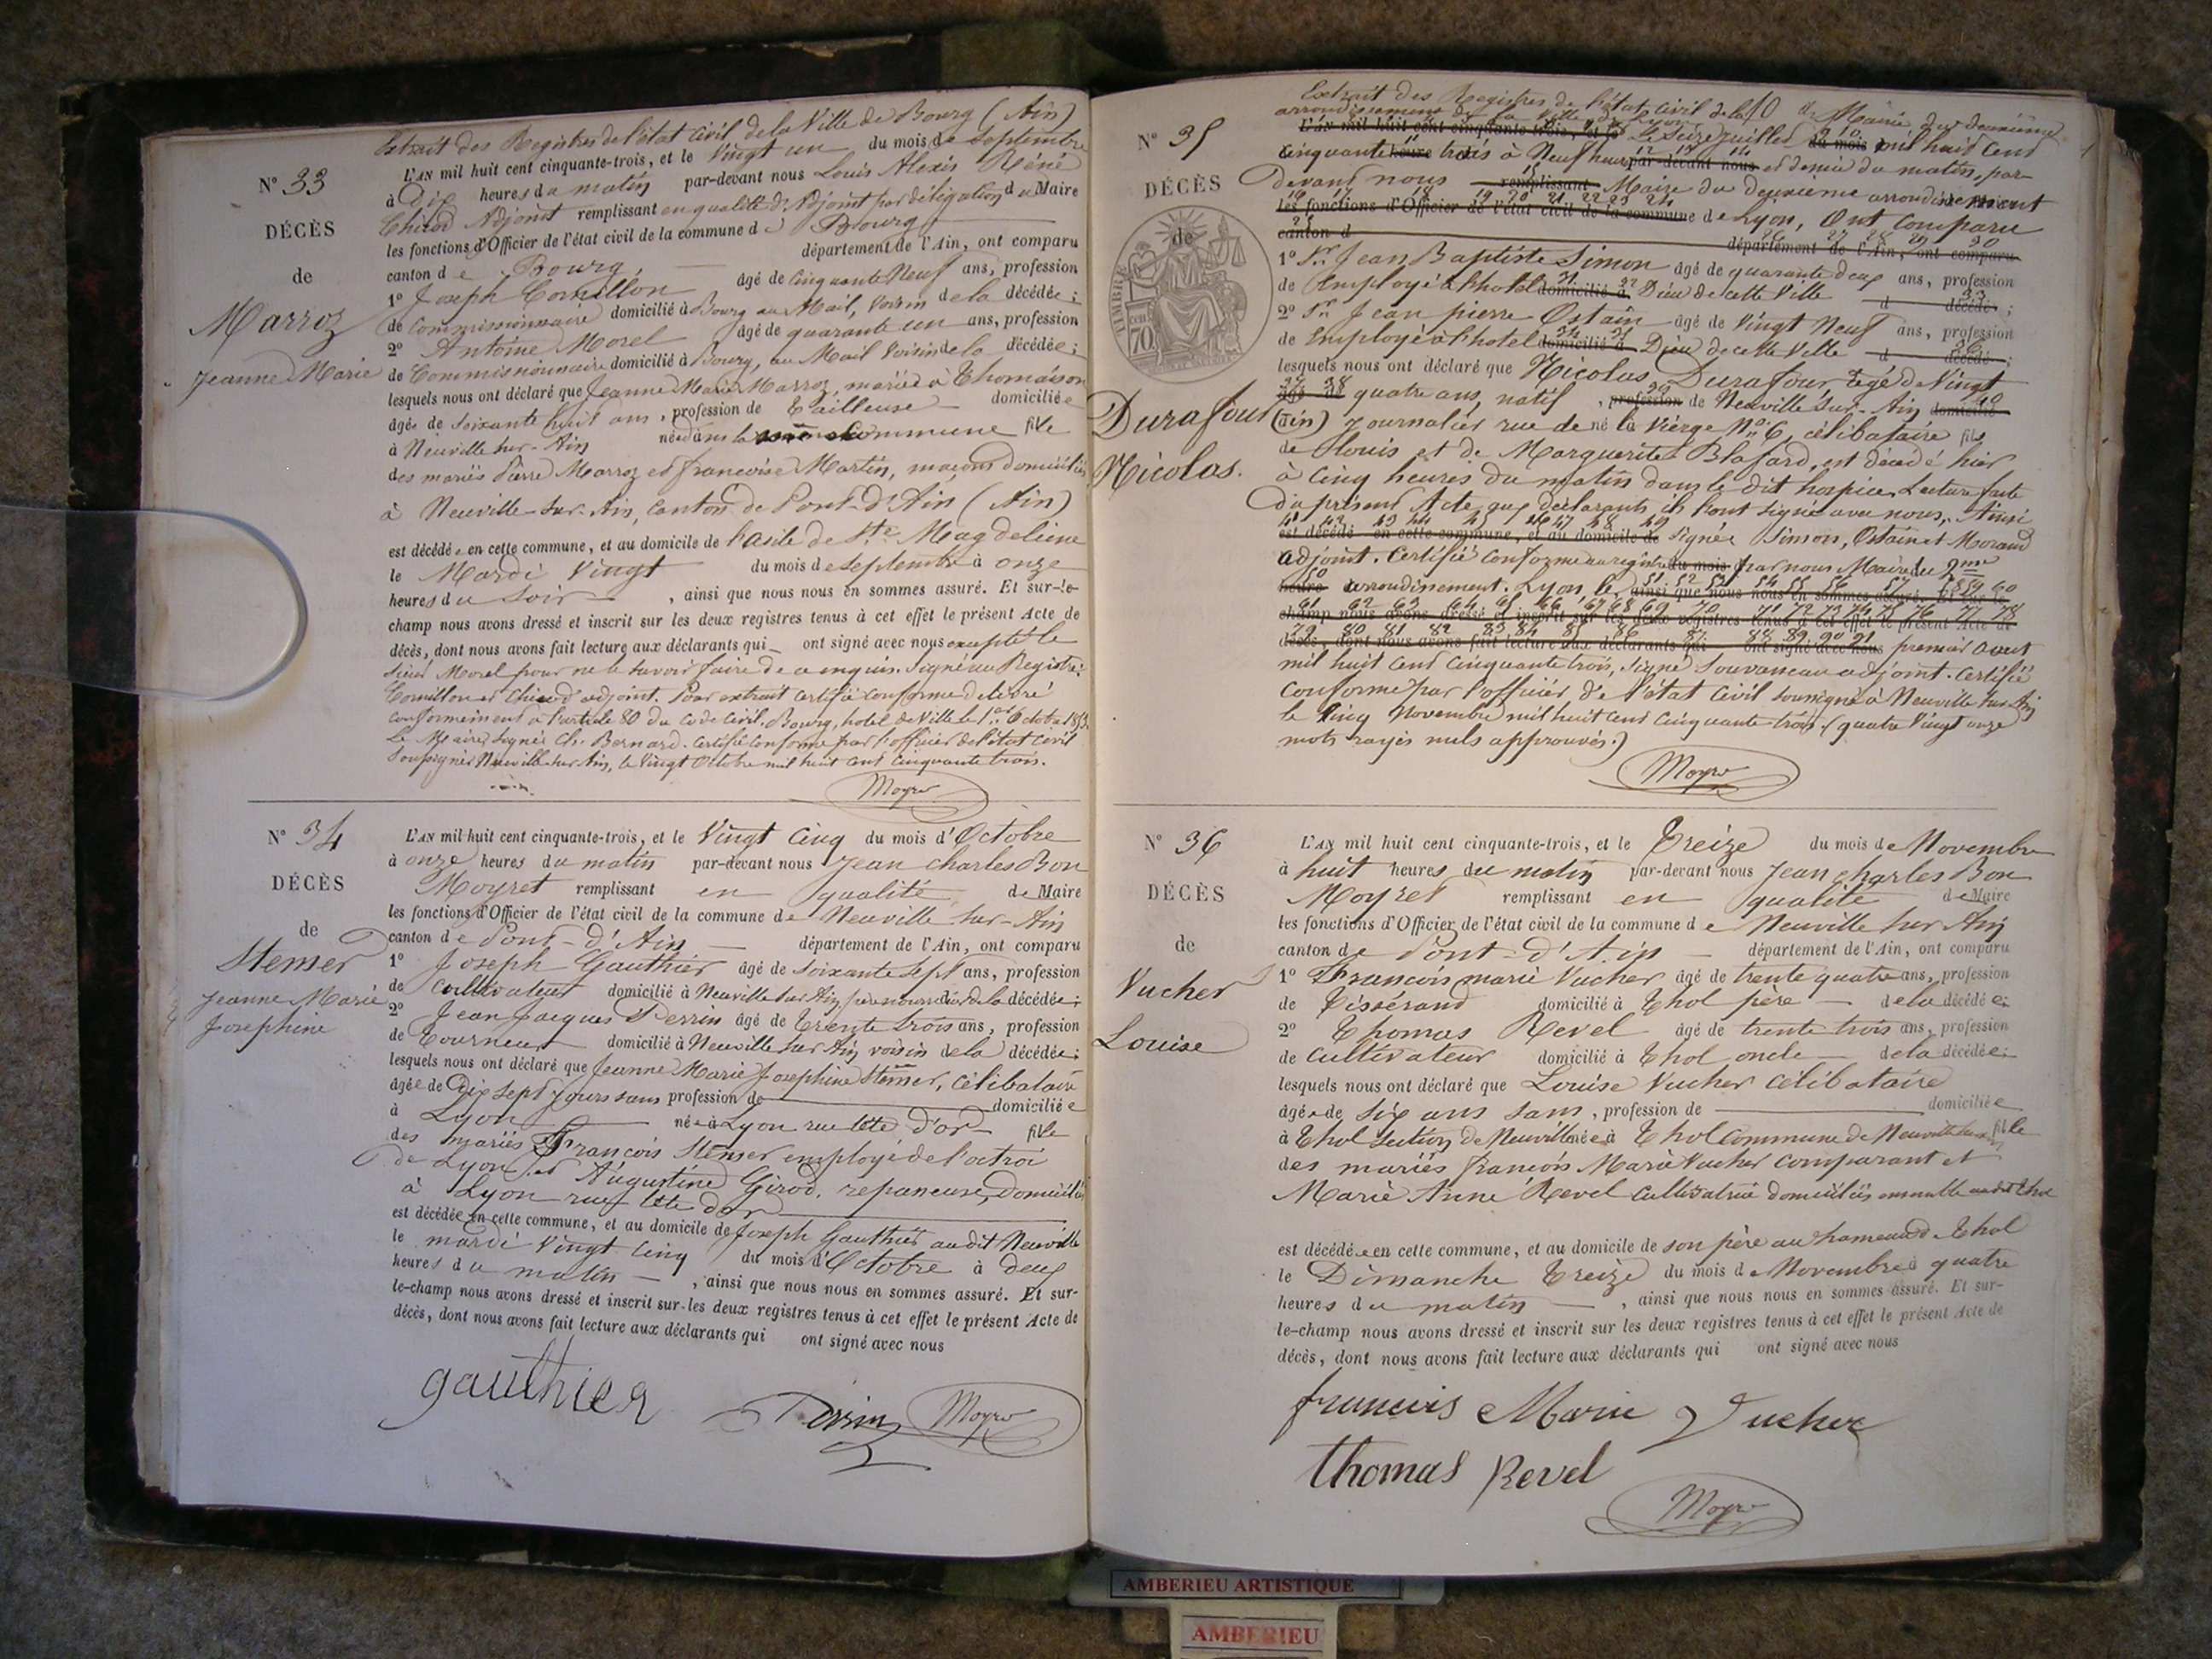 Extrait des Registres de l'état civil de la Ville de Bourg (Ain)
N° 33
L'AN mil huit cent cinquante-trois, et le Vingt un du mois de Septembre
à Dix heures du matin par-devant nous Louis Alexis Réné
Adjoint remplissant en qualité d'Adjoint par délégation du Maire
les fonctions d'Officier de l'état civil de la commune de Bourg
canton de Bourg département de l'Ain, ont comparu
1° Joseph Cornillon âgé de Cinquante Neuf ans, profession
de Commissionnaire domicilié à Bourg au Mail, voisin de la décédée;
2° Antoine Morel âgé de quarante un ans, profession
de Commissionnaire domicilié à Bourg, au Mail voisin de la décédée;
lesquels nous ont déclaré que Jeanne Marie Marroz, mariée à Thomasson
âgée de soixante huit ans, profession de Tailleuse domiciliée
à Neuville sur-Ain née dans la commune fille
des mariés Pierre Marroz et françoise Martin, maçons domiciliés
à Neuville-sur-Ain, canton de Pont-d'Ain (Ain)
est décédée en cette commune, et au domicile de l'asile de Ste Magdeleine
le Mardi Vingt du mois de Septembre à onze
heures du Soir, ainsi que nous nous en sommes assuré. Et sur-le-
champ nous avons dressé et inscrit sur les deux registres tenus à cet effet le présent Acte de
décès, dont nous avons fait lecture aux déclarants qui ont signé avec nous excepté le
sieur Morel pour ne le savoir faire de ce enquis. Signé au Registre:
Cornillon et adjoint. Pour extrait certifié conforme délivré
conformément à l'article 80 du Code Civil. Bourg, hotel de Ville le 1er Octobre 1853.
Le Maire, signé Ch. Bernard. Certifié conforme par l'officier de l'état civil
soussigné Neuville sur Ain, le Vingt Octobre mil huit cent Cinquante trois.
Moyret
DÉCÈS
de
Marroz
Jeanne Marie
N° 34
DÉCÈS
de
Stemer
Jeanne Marie
Josephine
L'AN mil huit cent cinquante-trois, et le Vingt Cinq du mois d'Octobre
à onze heures du matin par-devant nous Jean Charles Bon
Moyret remplissant en qualité de Maire
les fonctions d'Officier de l'état civil de la commune de Neuville sur-Ain
canton de Pont-d'Ain département de l'Ain, ont comparu
1° Joseph Gauthier âgé de soixante sept ans, profession
de Cultivateur domicilié à Neuville sur Ain, père nourricier de la décédée;
2° Jean Jacques Perrin âgé de Trente trois ans, profession
de Tourneur domicilié à Neuville sur Ain voisin de la décédée;
lesquels nous ont déclaré que Jeanne Marie Josephine Stemer, Célibataire
âgée de Dix sept jours sans profession de domiciliée
à Lyon née à Lyon rue tête d'or fille
des mariés François Stemer employé de l'octroi
de Lyon et Augustine Girod, repasseuse, domiciliés
à Lyon rue tête d'or
est décédée en cette commune, et au domicile de Joseph Gauthier audit Neuville
le mardi Vingt Cinq du mois d'Octobre à deux
heures du matin, ainsi que nous nous en sommes assuré. Et sur-
le-champ nous avons dressé et inscrit sur les deux registres tenus à cet effet le présent Acte de
décès, dont nous avons fait lecture aux déclarants qui ont signé avec nous
gauthier Perrin Moyret
Extrait des Registres de l'état civil de la Mairie du deuxième
arrondissement de la Ville de Lyon
N° 35
L'AN mil huit cent cinquante-trois, et le Le Seize juillet du mois mil huit cent
cinquante heure trois à Neuf heures par-devant nous et demie du matin, par-
Devant nous remplissant Maire du deuxième arrondissement
les fonctions d'Officier de l'état civil de la commune de Lyon, Ont comparu
canton d département de l'Ain, ont comparu
1° Sr Jean Baptiste Simon âgé de quarante deux ans, profession
de Employé à l'hotel domicilié à Dieu de cette Ville d décédé;
2° Sr Jean pierre Ostain âgé de Vingt Neuf ans, profession
de Employé à l'hotel domicilié à Dieu de cette Ville d décédé;
lesquels nous ont déclaré que Nicolas Durafour, âgé de Vingt
quatre ans, natif, profession de Neuville Sur-Ain domicilié
(Ain) journalier rue de né la Vierge N° 6, célibataire fils
de Louis et de Marguerite Blafard, est décédé hier
à Cinq heures du matin dans le dit hospice. Lecture faite
du présent Acte aux déclarants ils l'ont signé avec nous. Ainsi
est décédé en cette commune, et au domicile de signé Simon, Ostain et Morand
adjoint. Certifié conforme au registre du mois par nous Maire du 2me
heure arrondissement. Lyon, le ainsi que nous nous en sommes assuré. Et sur-le-
champ nous avons dressé et inscrit sur les deux registres tenus à cet effet le présent Acte de
décès, dont nous avons fait lecture aux déclarants qui ont signé avec nous premier août
mil huit Cent Cinquante trois, signé Souvaneau adjoint. Certifié
conforme par l'officier de l'état civil soussigné à Neuville sur Ain
le Cinq Novembre mil huit cent Cinquante trois (quatre Vingt onze
mots rayés nuls approuvés.)
Moyret
DÉCÈS
de
TIMBRE
70
Durafour
Nicolas.
N° 36
DÉCÈS
de
Vucher
Louise
L'AN mil huit cent cinquante-trois, et le Treize du mois de Novembre
à huit heures du matin par-devant nous Jean charles Bon
Moyret remplissant en qualité de Maire
les fonctions d'Officier de l'état civil de la commune de Neuville sur Ain
canton de Pont-d'Ain département de l'Ain, ont comparu
1° François marie Vucher âgé de trente quatre ans, profession
de Tisserand domicilié à Thol père de la décédée;
2° Thomas Revel âgé de trente trois ans, profession
de Cultivateur domicilié à Thol oncle de la décédée;
lesquels nous ont déclaré que Louise Vucher célibataire
âgée de six ans sans, profession de domiciliée
à Thol section de Neuville née à Thol commune de Neuville fille
des mariés françois Marie Vucher comparant et
Marie Anne Revel cultivatrice domiciliés ensemble audit Thol
est décédée en cette commune, et au domicile de son père au hameau de Thol
le Dimanche Treize du mois de Novembre à quatre
heures du matin, ainsi que nous nous en sommes assuré. Et sur-
le-champ nous avons dressé et inscrit sur les deux registres tenus à cet effet le présent Acte de
décès, dont nous avons fait lecture aux déclarants qui ont signé avec nous
francois Marie Vucher
thomas Revel
Moyret
AMBERIEU ARTISTIQUE
AMBERIEU